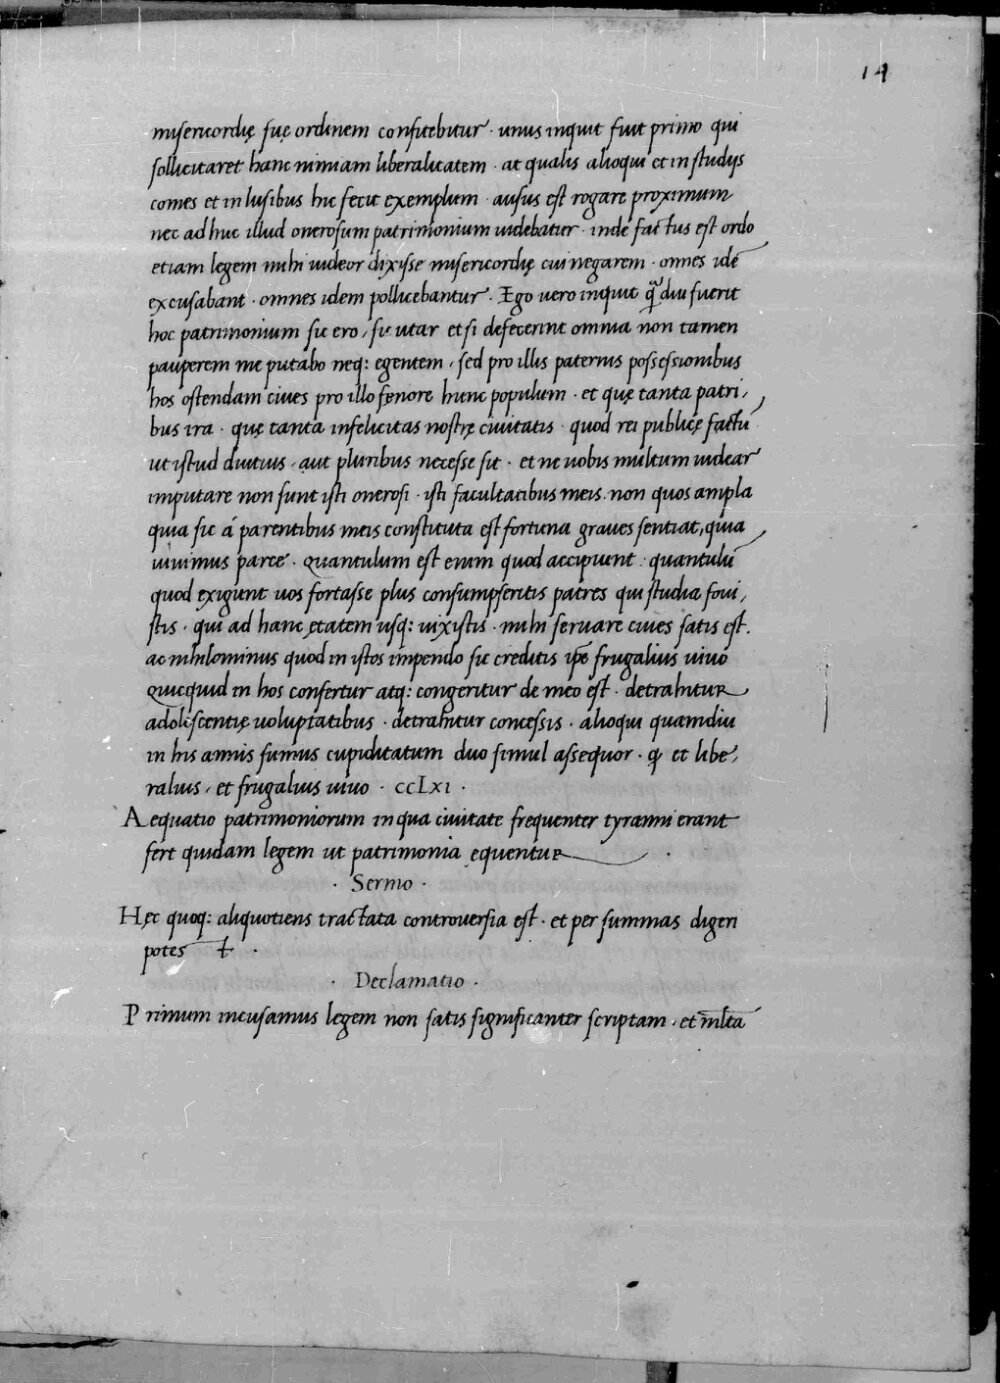 14
misericordię suę ordinem confitebitur · unus inquit fuit primo qui
sollicitaret hanc nimiam liberalitatem · at qualis alioqui et in studijs
comes et in lusibus hic fecit exemplum · ausus est rogare proximum
nec ad huc illud onerosum patrimonium uidebatur · inde factus est ordo
etiam legem mihi uideor dixisse misericordię cui negarem · omnes idē
excusabant · omnes idem pollicebantur · Ego uero inquit q̄ diu fuerit
hoc patrimonium sic ero, sic utar et si defecerint omnia non tamen
pauperem me putabo neq: egentem, sed pro illis paternis possessionibus
hos ostendam ciues pro illo fenore hunc populum · et quę tanta patri,
bus ira · quę tanta infelicitas nostrę ciuitatis · quod rei publicę factū
ut istud diuitius, aut pluribus necesse sit · et ne uobis multum uidear
imputare non sunt isti onerosi · isti facultatibus meis non quos ampla
quia sic á parentibus meis constituta est fortuna graues sentiat, quia
uiuimus parce · quantulum est enim quod accipiunt · quantulū
quod exigunt uos fortasse plus consumpseritis patres qui studia foui,
stis · qui ad hanc ętatem usq: uixistis · mihi seruare ciues satis est.
ac nihilominus quod in istos impendo sic creditis ip̄e frugalius uiuo
quicquid in hos confertur atq: congeritur de meo est · detrahitur
adoliscentię uoluptatibus · detrahitur concessis · alioqui quamdiu
in his annis sumus cupiditatum duo simul assequor · q̄ et libe,
ralius, et frugalius uiuo · ccLxi ·
Aequatio patrimoniorum in qua ciuitate frequenter tyranni erant
fert quidam legem ut patrimonia equentur ·
· Sermo ·
Hęc quoq: aliquotiens tractata controuersia est · et per summas digeri
potes t ·
· Declamatio ·
Primum incusamus legem non satis significanter scriptam · et ml̄ta